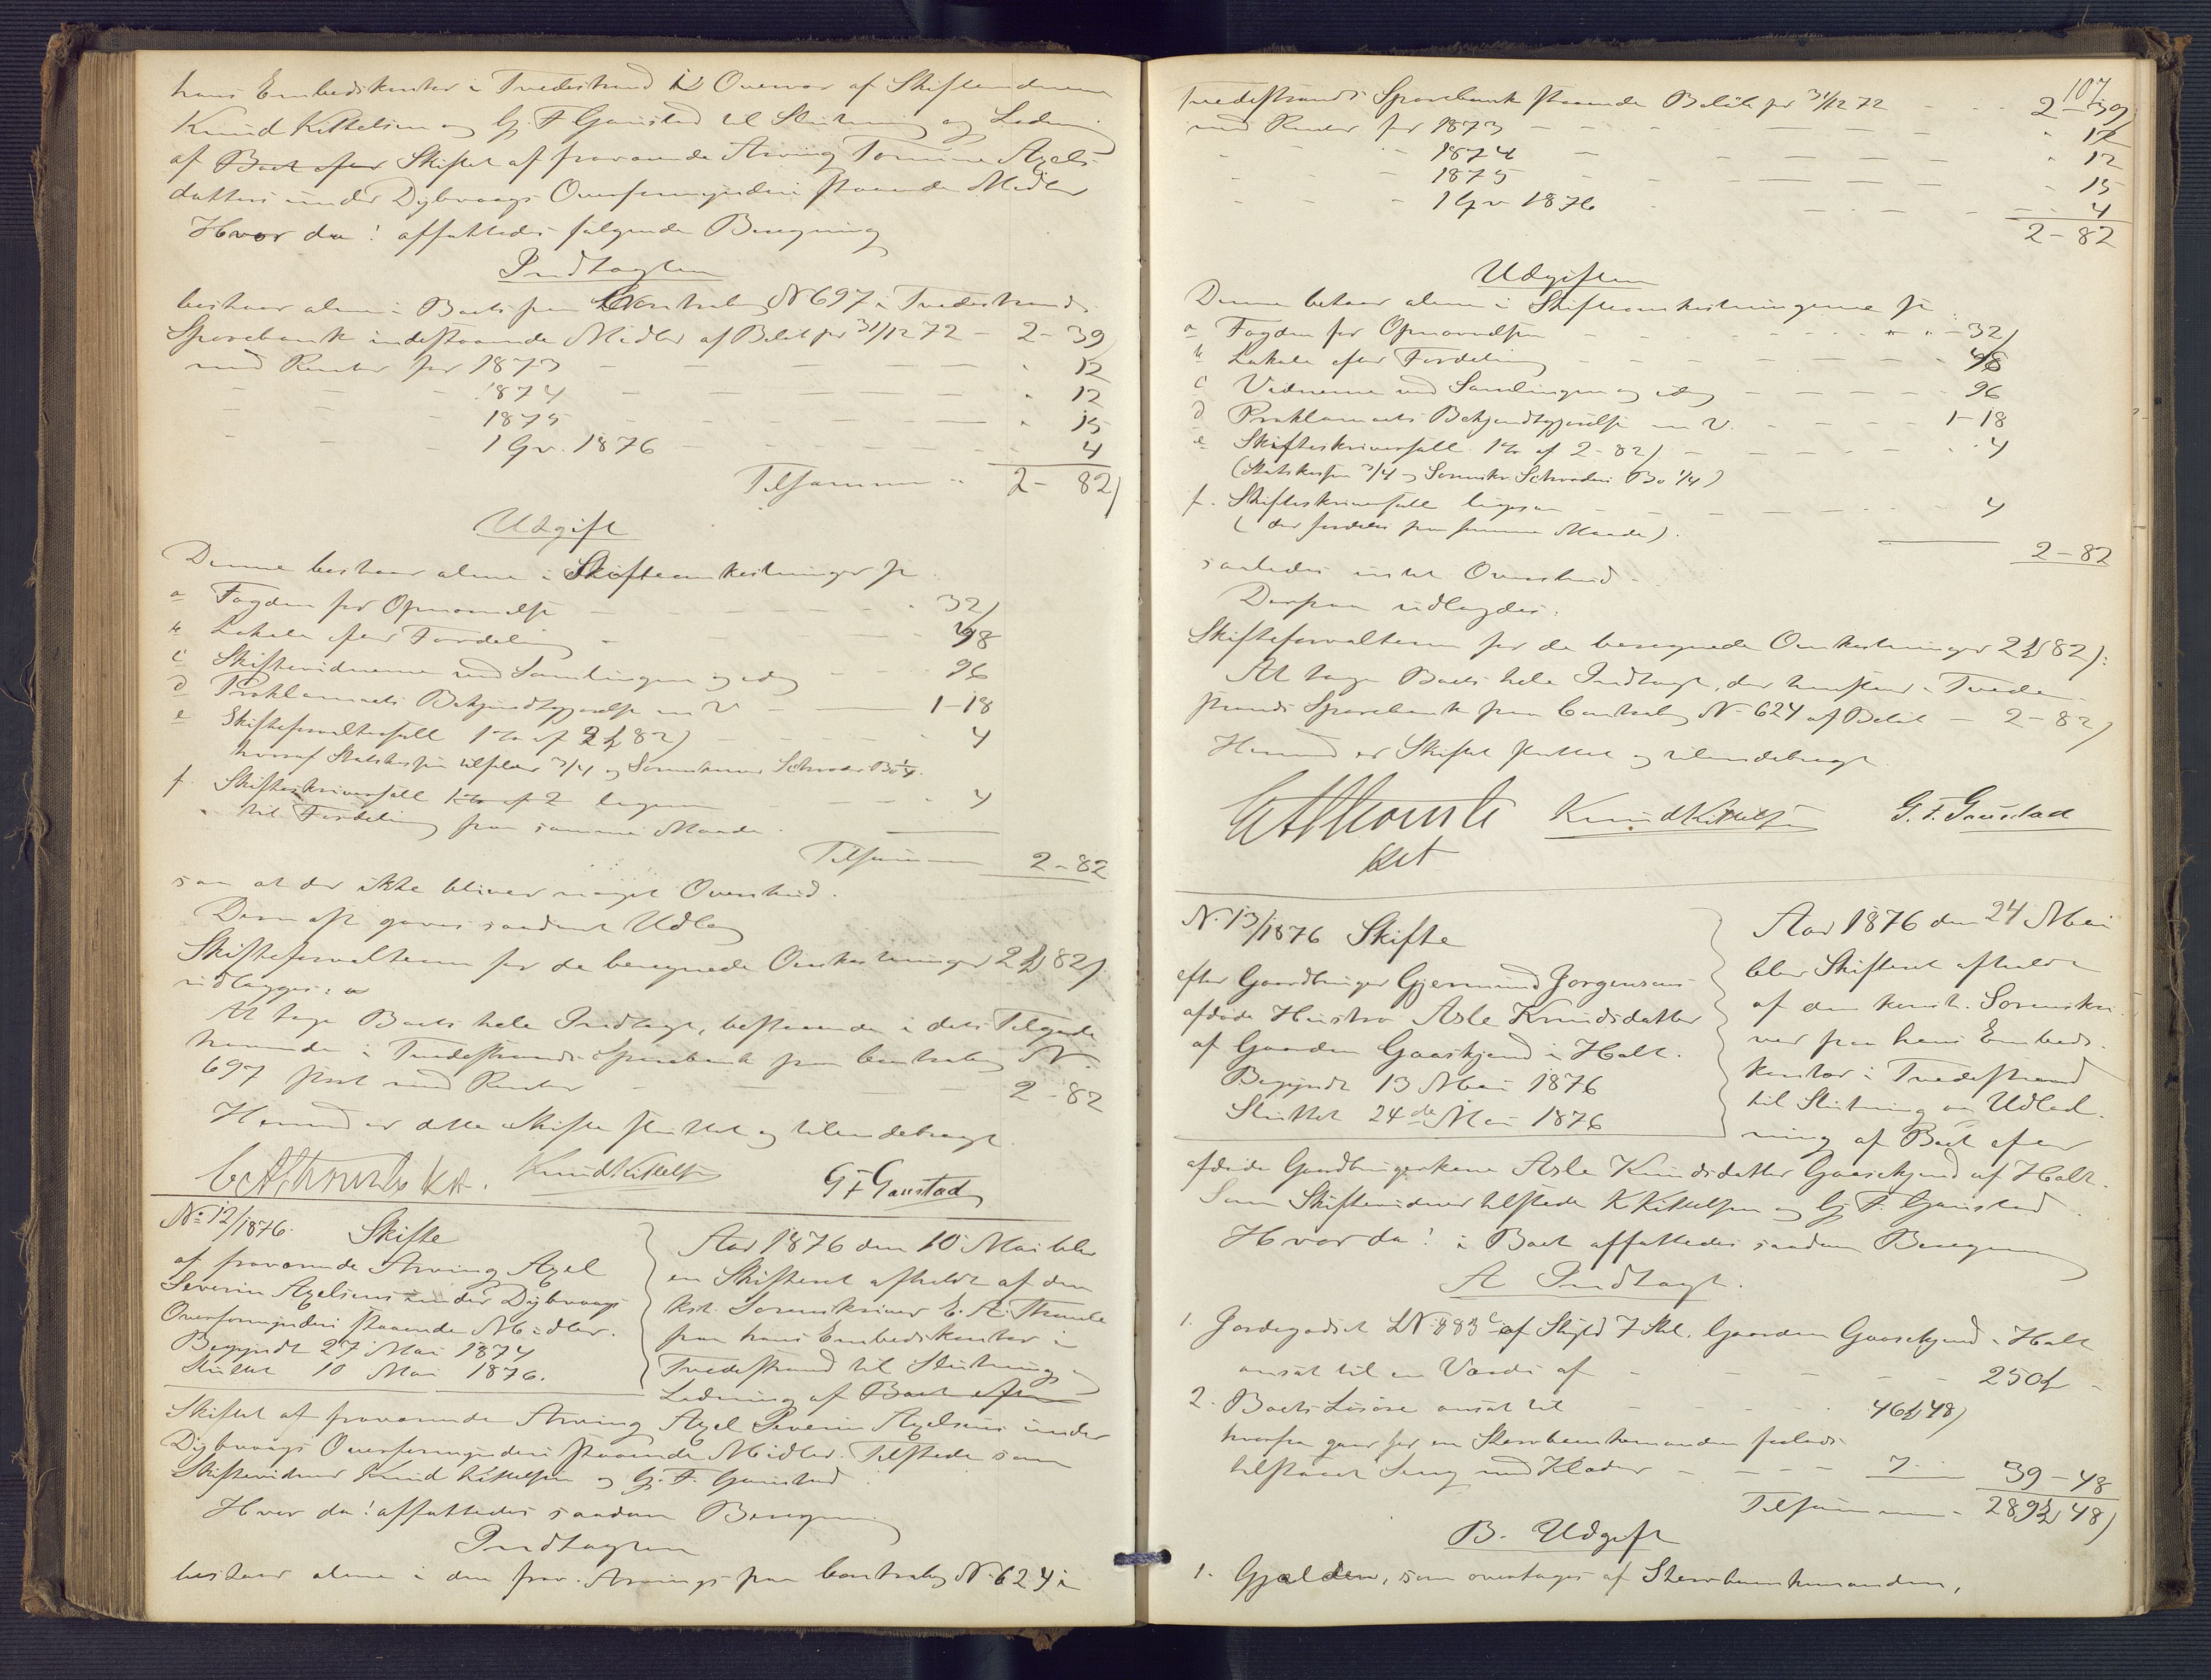 hans Embedskontor i Tvedestrand i Overvær af Skiftevidnerne
Knud Kittelsen og Gj. F. Gaustad til Slutning og Ledning
af Boet efter Skiftet af fraværende Arving Tomine Axels-
datters under Dybvaags Overformynderi staaende Midler
Hvor da! affattedes følgende Beregning
Indtægten
bestaar alene i Boets paa Contrabog N 697 i Tvedestrands
Sparebank indestaaende Midler af Beløb pr 31/12 72 - 2 - 39
med Renter for 1873 12
1874 12
1875 15
1 Qv. 1876 4
Tilsammen 2 - 82
Udgift
Denne bestaar alene i Skifteomkostninger
a Fogden for Opnævnelse 32
b Lokale efter Fordeling 48
c Skiftevidnerne ved Samlingen og idag 96
d Proklamaets Bekjendtgjørelse m V 1-18
e Skifteforvaltersall 1% af 2 82 4
hvoraf Statskassen tilfalder 3/4 og Sorenskriver Schrøders Bo 1/4.
f. Skifteskriversall 1% af 2 ligesaa 4
til Fordeling paa samme Maade.
Tilsammen 2 - 82
saa at der ikke bliver noget Overskud.
Dernæst gaves saadant Udlæg
Skifteforvalteren for de beregnede Omkostninger 2 82
udlægges:
At tage Boets hele Indtægt, bestaaende i dets Tilgode-
havende i Tvedestrands Sparebank paa Contrabog N.
697 stort med Renter 2 - 82
Hermed er dette Skifte sluttet og tilendebragt.
Knud Kittelsen G F Gaustad
No 12/1876. Skifte
af fraværende Arving Axel
Severin Axelsens under Dybvaags
Overformynderi staaende Midler.
Begyndt 27 Mai 1874
Sluttet 10 Mai 1876.
Aar 1876 den 10 Mai blev
en Skifteret afholdt af den
kst. Sorenskriver
paa hans Embedskontor i
Tvedestrand til Slutning og
Ledning af Boet efter
Skiftet af fraværende Arving Axel Severin Axelsens under
Dybvaags Overformynderi staaende Midler. Tilstede som
Skiftevidner Knud Kittelsen og Gj. F. Gaustad.
Hvor da! affattedes saadan Beregning
Indtægten
bestaar alene i den frav. Arvings paa Contrabog N. 624 i
107
Tvedestrands Sparebank staaende Beløb pr 31/12 72 2 - 39
med Renter for 1873 12
1874 12
1875 15
1 Qv 1876 4
2 - 82
Udgiften
Denne bestaar alene i Skifteomkostningerne
a Fogden for Opnævnelsen 32
b Lokale efter Fordeling 48
c Vidnerne ved Samlingen og idag 96
d Proklamaets Bekjendtgjørelse m V. 1-18
e Skifteskriversall 1% af 2 - 82 4
(Statskassen 3/4 og Sorenskr. Schrøders Bo 1/4)
f. Skifteskriversall ligesaa 4
( der fordeles paa samme Maade).
2 - 82
saaledes intet Overskud.
Derpaa udlagdes:
Skifteforvalteren for de beregnede Omkostninger 2 82:
At tage Boets hele Indtægt, der henstaar i Tvede-
strands Sparebank paa Contrabog N. 624 af Beløb - 2 - 82
Hermed er Skiftet sluttet og tilendebragt
Knud Kittelsen G. F. Gaustad
kst
N. 13/1876 Skifte
efter Gaardbruger Gjermund Jørgensens
afdøde Hustro Asle Knudsdatter
af Gaarden Gaaskjend i Holt.
Begyndt 13 Mai 1876
Sluttet 24de Mai 1876
Aar 1876 den 24 Mai
blev Skifteret afholdt
af den konst. Sorenskri-
ver paa hans Embeds-
kontor i Tvedestrand
til Slutning og Udlæd-
ning af Boet efter
afdøde Gaardbrugerkone Asle Knudsdatter Gaasekjend af Holt.
Som Skiftevidner tilstede K Kittelsen og Gj. F. Gaustad.
Hvor da! i Boet affattedes saadan Beregning
A Indtægt.
1. Jordegodset LN. 883 c af Skyld 7 Skl. Gaarden Gaasekjend i Holt
ansat til en Værdi af 250
2. Boets Løsøre ansat til 46 48
hvorfra gaar før en Stervboenkemanden
tilstaaet Seng med Klæder 7 39 - 48
Tilsammen 289 48
B. Udgift
1. Gjælden, som overtages af Stervboenkemanden,